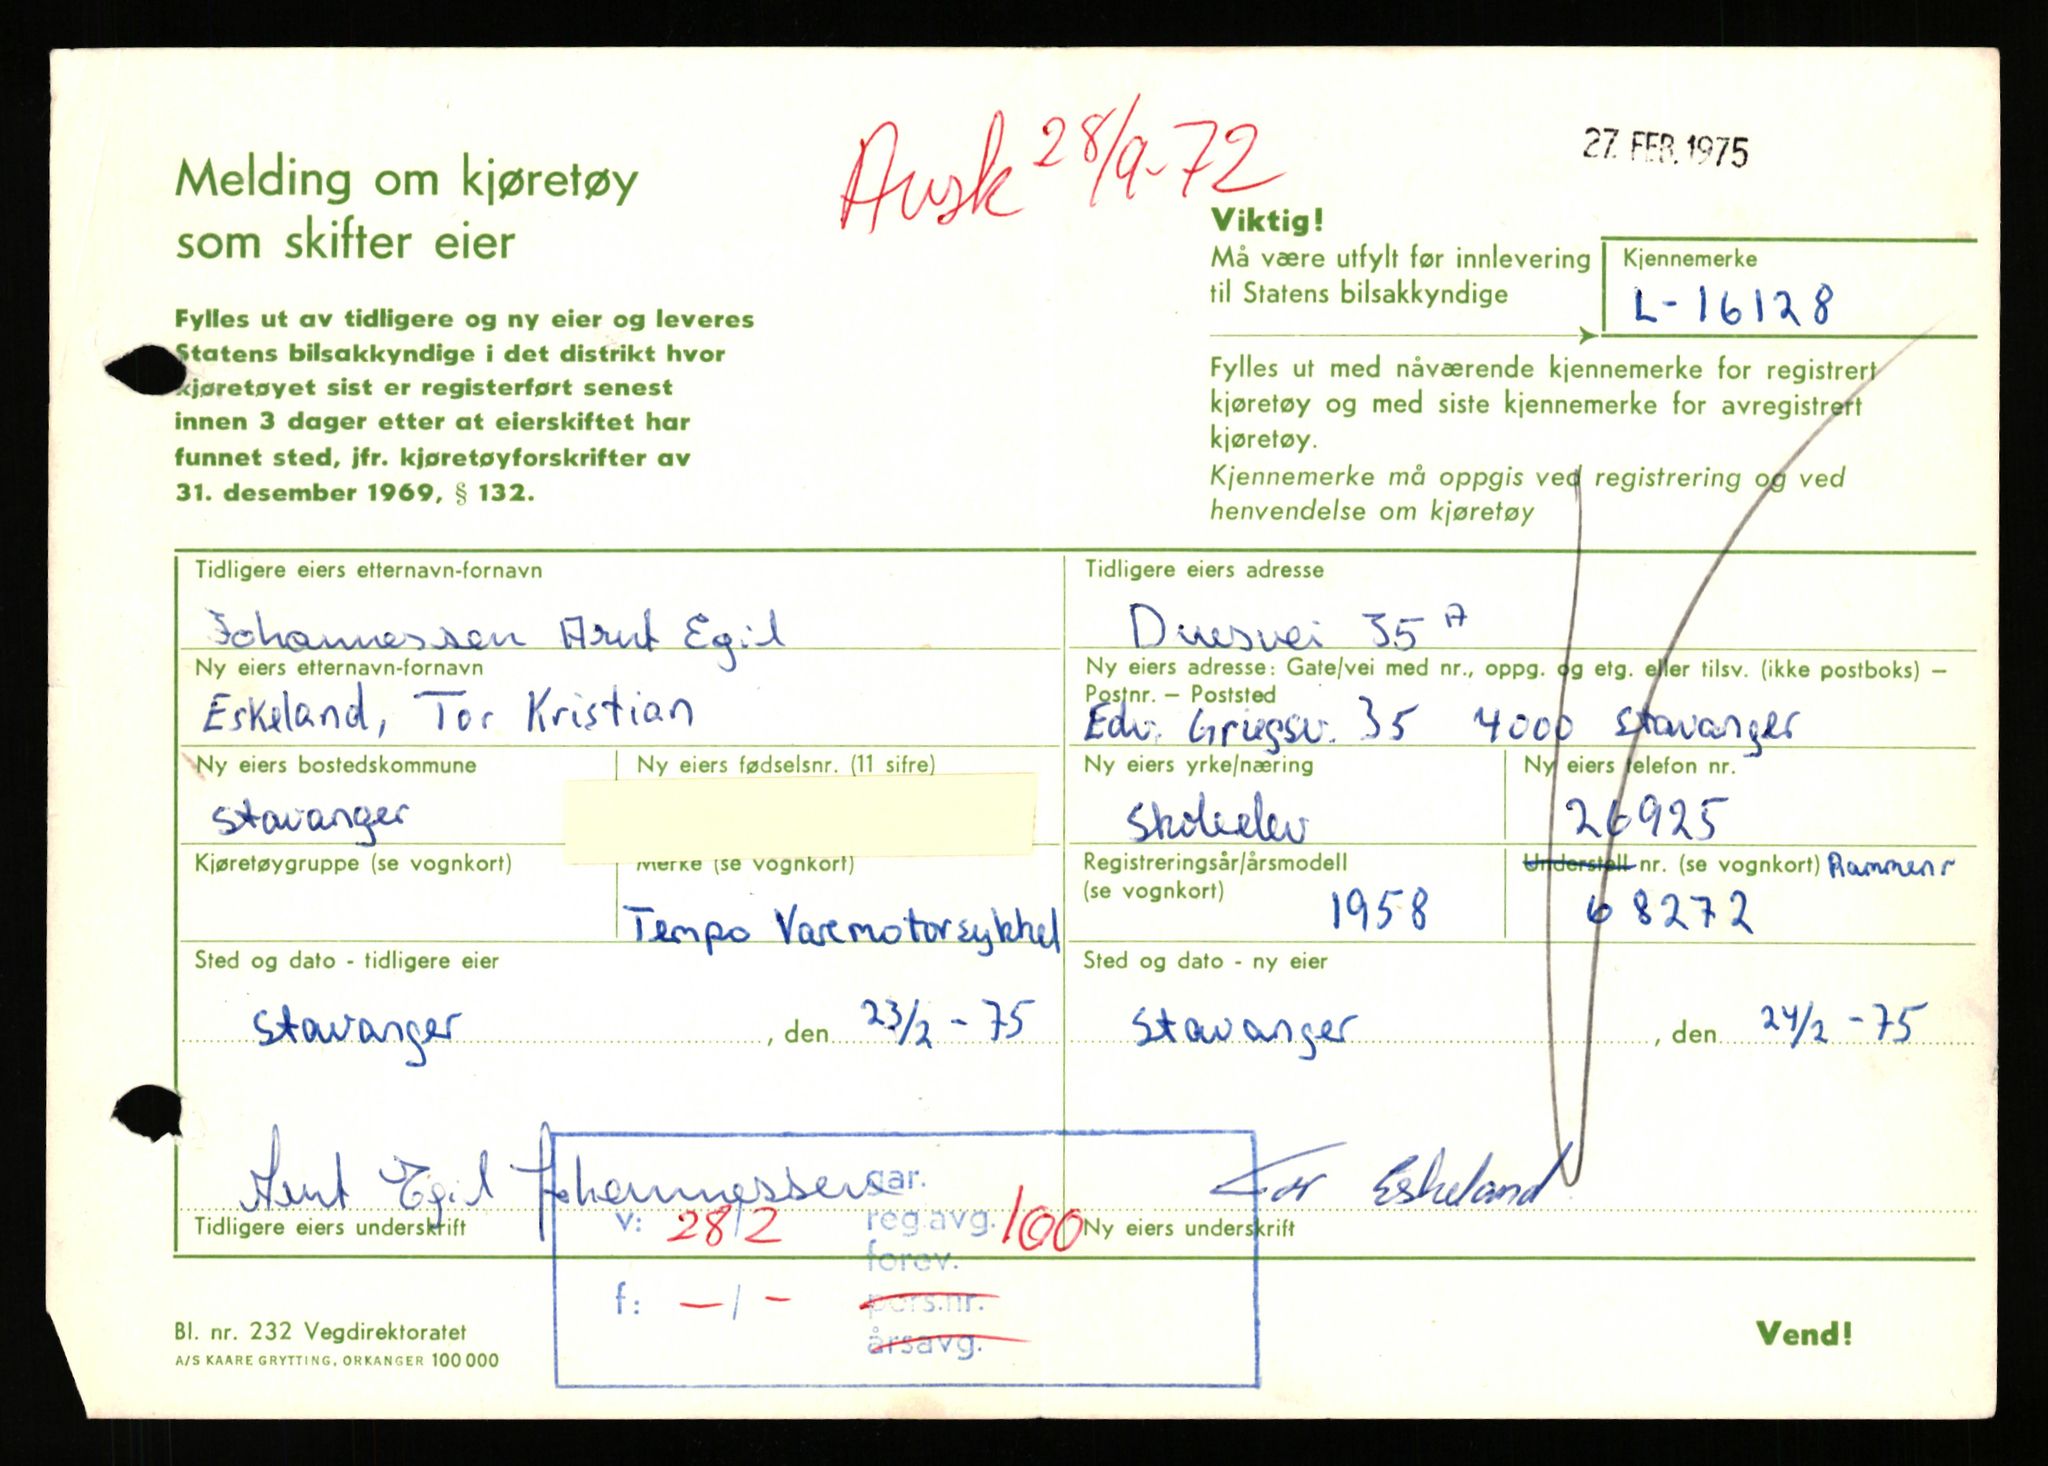 Melding om kjøretøy
som skifter eier
Avsk 28/9-72
27. FEB. 1975
Fylles ut av tidligere og ny eier og leveres
Statens bilsakkyndige i det distrikt hvor
kjøretøyet sist er registerført senest
innen 3 dager etter at eierskiftet har
funnet sted, jfr. kjøretøyforskrifter av
31. desember 1969, § 132.
Viktig!
Må være utfylt før innlevering
til Statens bilsakkyndige
Kjennemerke
L-16128
Fylles ut med nåværende kjennemerke for registrert
kjøretøy og med siste kjennemerke for avregistrert
kjøretøy.
Kjennemerke må oppgis ved registrering og ved
henvendelse om kjøretøy
Tidligere eiers etternavn-fornavn
Johannessen Arnt Egil
Tidligere eiers adresse
Duesvei 35 A
Ny eiers etternavn-fornavn
Eskeland, Tor Kristian
Ny eiers adresse: Gate/vei med nr., oppg. og etg. eller tilsv. (ikke postboks) –
Postnr. – Poststed
Edv. Griegsv. 35 4000 Stavanger
Ny eiers bostedskommune
Stavanger
Ny eiers fødselsnr. (11 sifre)
Ny eiers yrke/næring
Skoleelev
Ny eiers telefon nr.
26925
Kjøretøygruppe (se vognkort)
Merke (se vognkort)
Tempo Varemotorsykkel
Registreringsår/årsmodell
(se vognkort)
1958
Understell nr. (se vognkort) Rammenr
68272
Sted og dato - tidligere eier
Stavanger, den 23/2 - 75
Sted og dato - ny eier
Stavanger, den 24/2 - 75
Arnt Egil Johannessen
Tidligere eiers underskrift
Tor Eskeland
Ny eiers underskrift
gar.
v: 28/2 reg.avg. 100
forev.
f: -/- pers.nr.
årsavg.
Bl. nr. 232 Vegdirektoratet
A/S KAARE GRYTTING, ORKANGER 100 000
Vend!